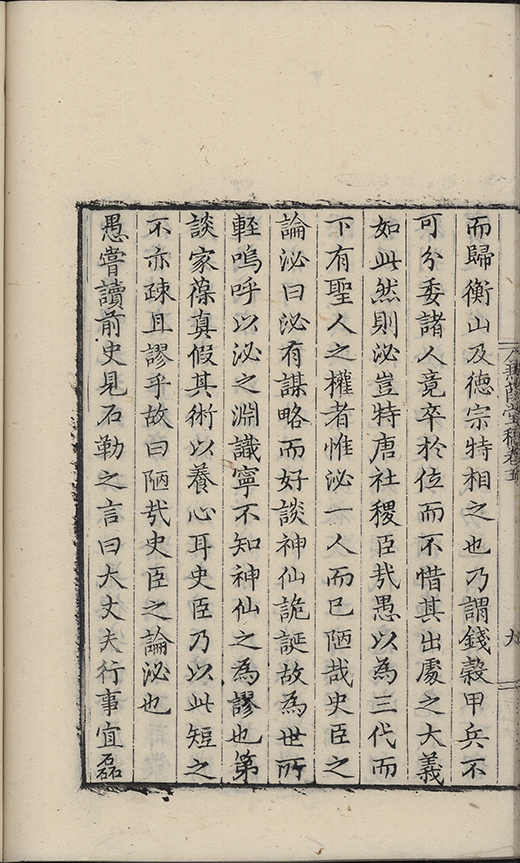 而歸衡山及德宗特相之也乃謂錢穀甲兵不
可分委諸人竟卒於位而不惜其出處之大義
如此然則泌豈特唐社稷臣㢤愚以為三代而
下有聖人之權者惟泌一人而已陋哉史臣之
論泌曰泌有謀略而好談神仙詭誕故為世所
輕嗚呼以泌之淵識寧不知神仙之為謬也第
談家葆真假其術以養心耳史臣乃以此短之
不亦疎且謬乎故曰陋㢤史臣之論泌也
愚嘗讀前史見石勒之言曰大丈夫行事宜磊